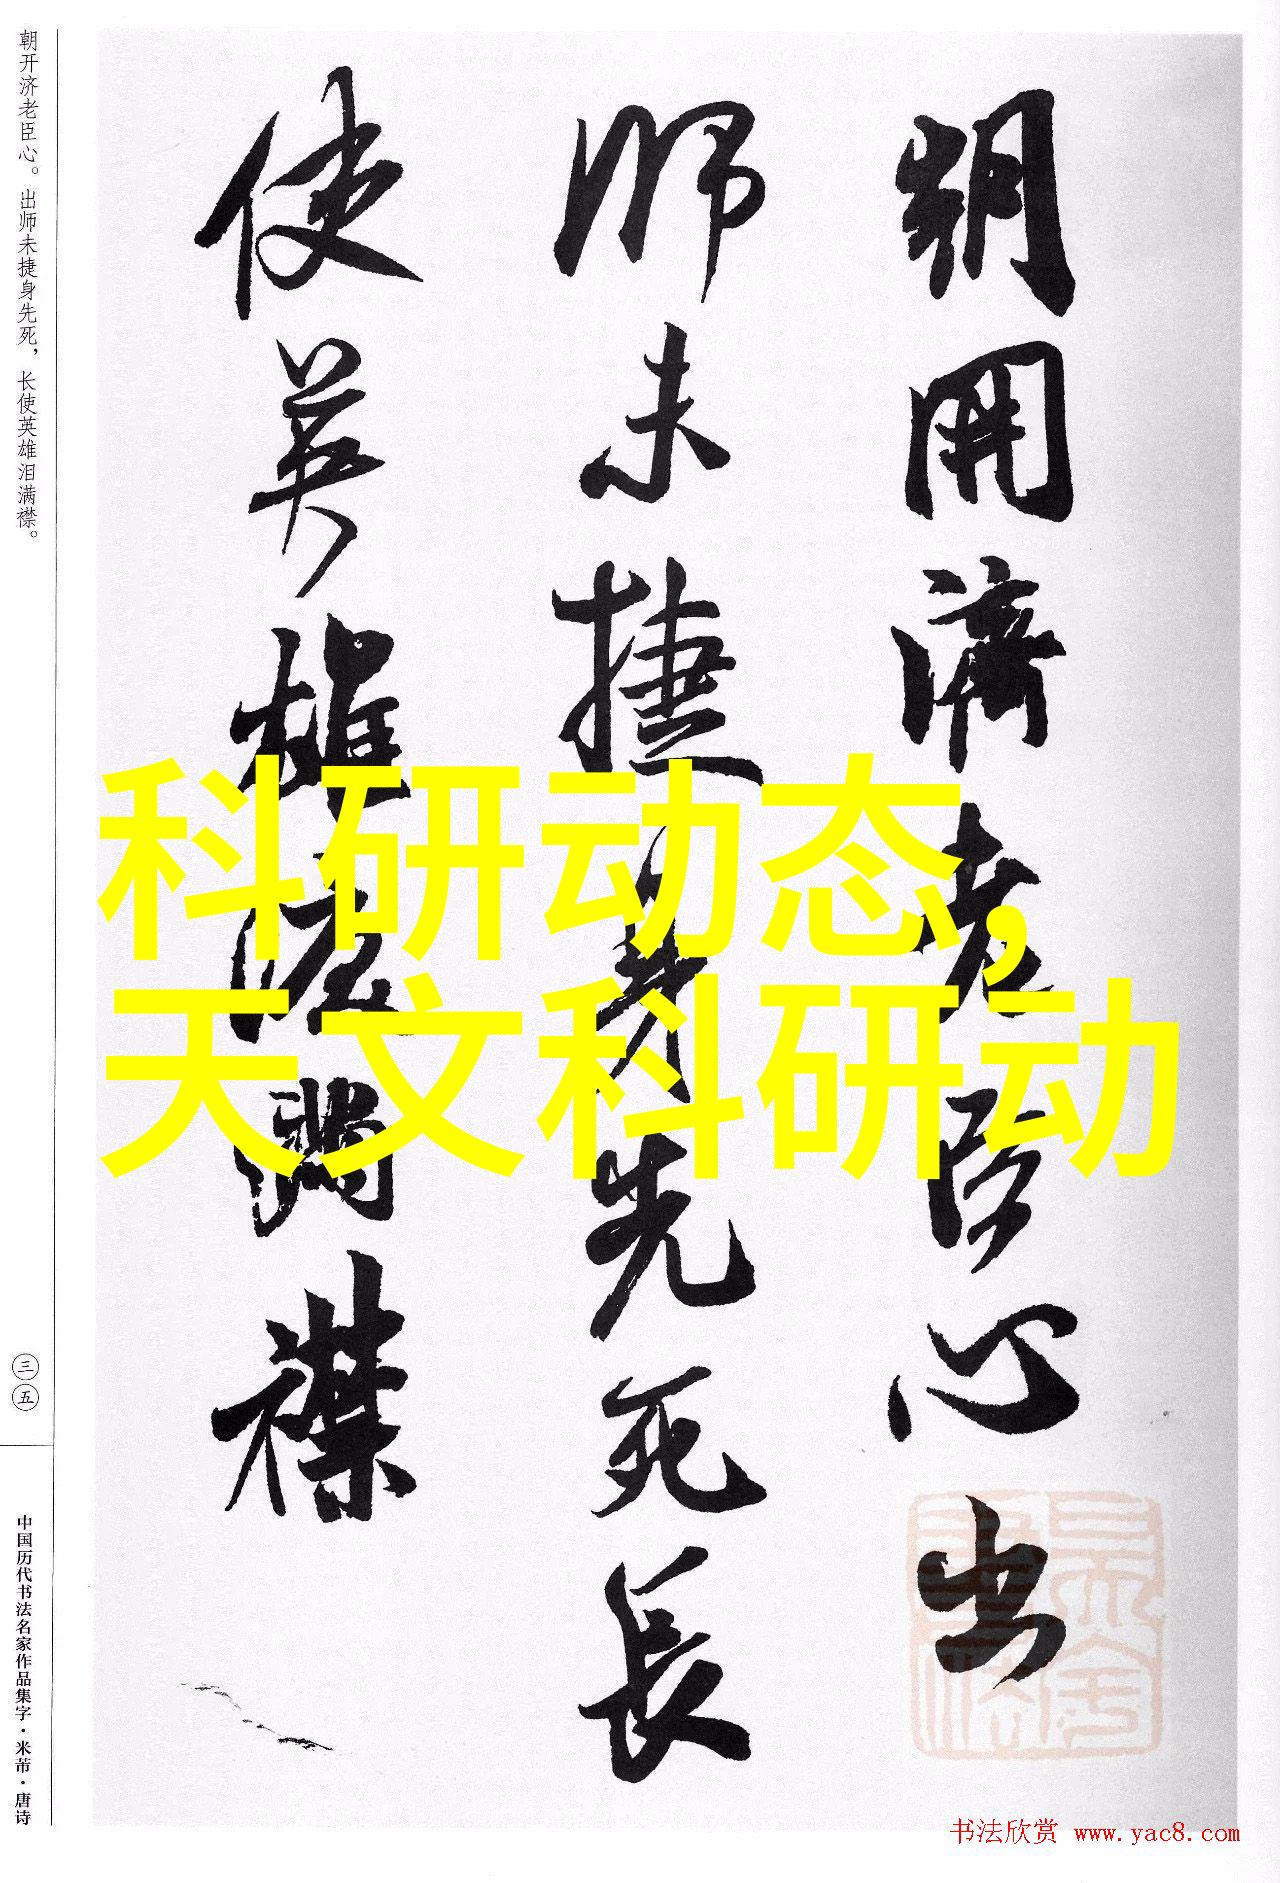 朝開濟老臣心出
師未捷身先死長
使英雄淚滿襟
朝开济老臣心。出师未捷身先死，长使英雄泪满襟。
三五
中国历代书法名家作品集字·米芾·唐诗
科研动态，
天文科研动
书法欣赏 www.yac8.com